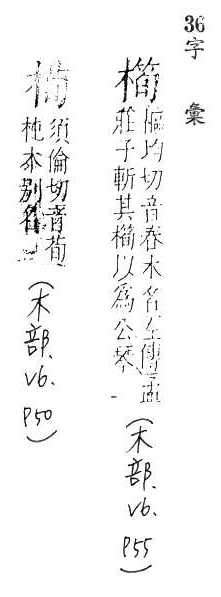 36字彙
橁
樞均切音春木名左傳孟
莊子斬其橁以為公琴
(木部. v6. P55)
須倫切音荀
杶木別名
(木部. v6. P50)